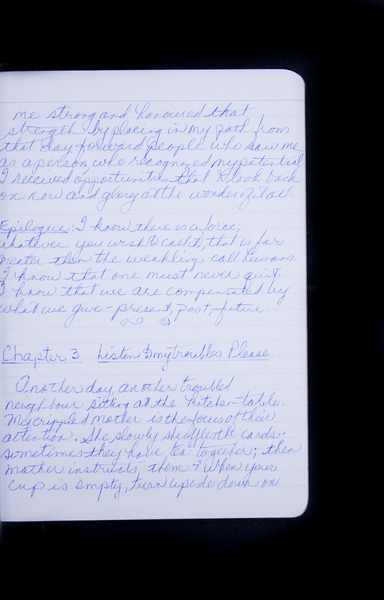 me strong and honoured that
strength by placing in my path from
that day forward people who saw me
as a person who recognized my potential
I received opportunities that I look back
on now and glory at the wonder of it all.
Epilogue: I know there is a force,
whatever you wish to call it, that is far
greater then the weaklings call humans.
I know that one must never quit
I know that we are compensated by
what we give - present, past, future.
Chapter 3 Listen to my troubles Please.
Another day, another troubled
neighbour sitting at the kitchen table.
My crippled mother is the focus of their
attention. She slowly shuffles the cards;
sometimes they have tea together; then
mother instructs them "When your
cup is empty, turn upside down on